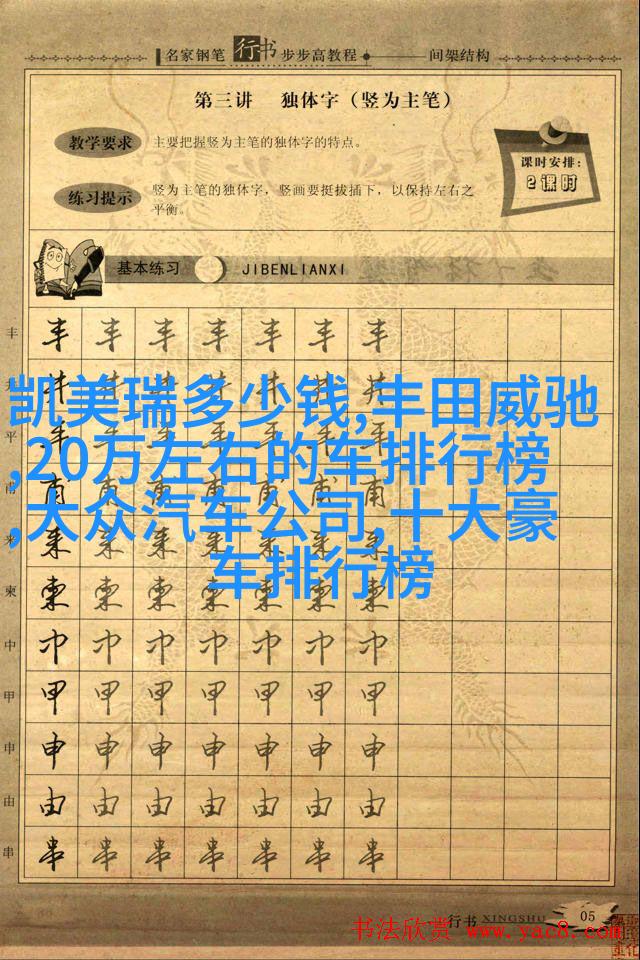 名家钢笔行书步步高教程 间架结构
第三讲 独体字（竖为主笔）
教学要求 主要把握竖为主笔的独体字的特点。
练习提示 竖为主笔的独体字，竖画要挺拔插下，以保持左右之
平衡。
课时安排：
2课时
基本练习 JIBENLIANXI
丰 丰 丰 丰 丰 丰 丰 丰
凯美瑞多少钱,丰田威驰
,20万左右的车排行榜
,大众汽车公司,十大豪
车排行榜
平
甫
来
柬 柬 柬 柬 柬 柬 柬 柬
中 中 中 中 中 中 中 中
甲 甲 甲 甲 甲 甲 甲 甲
申 申 申 申 申 申 申 申
由 由 由 由 由 由 由 由
串 串 串 串 串 串 串 串
行书 XINGSHU 05
书法欣赏 www.yac8.com